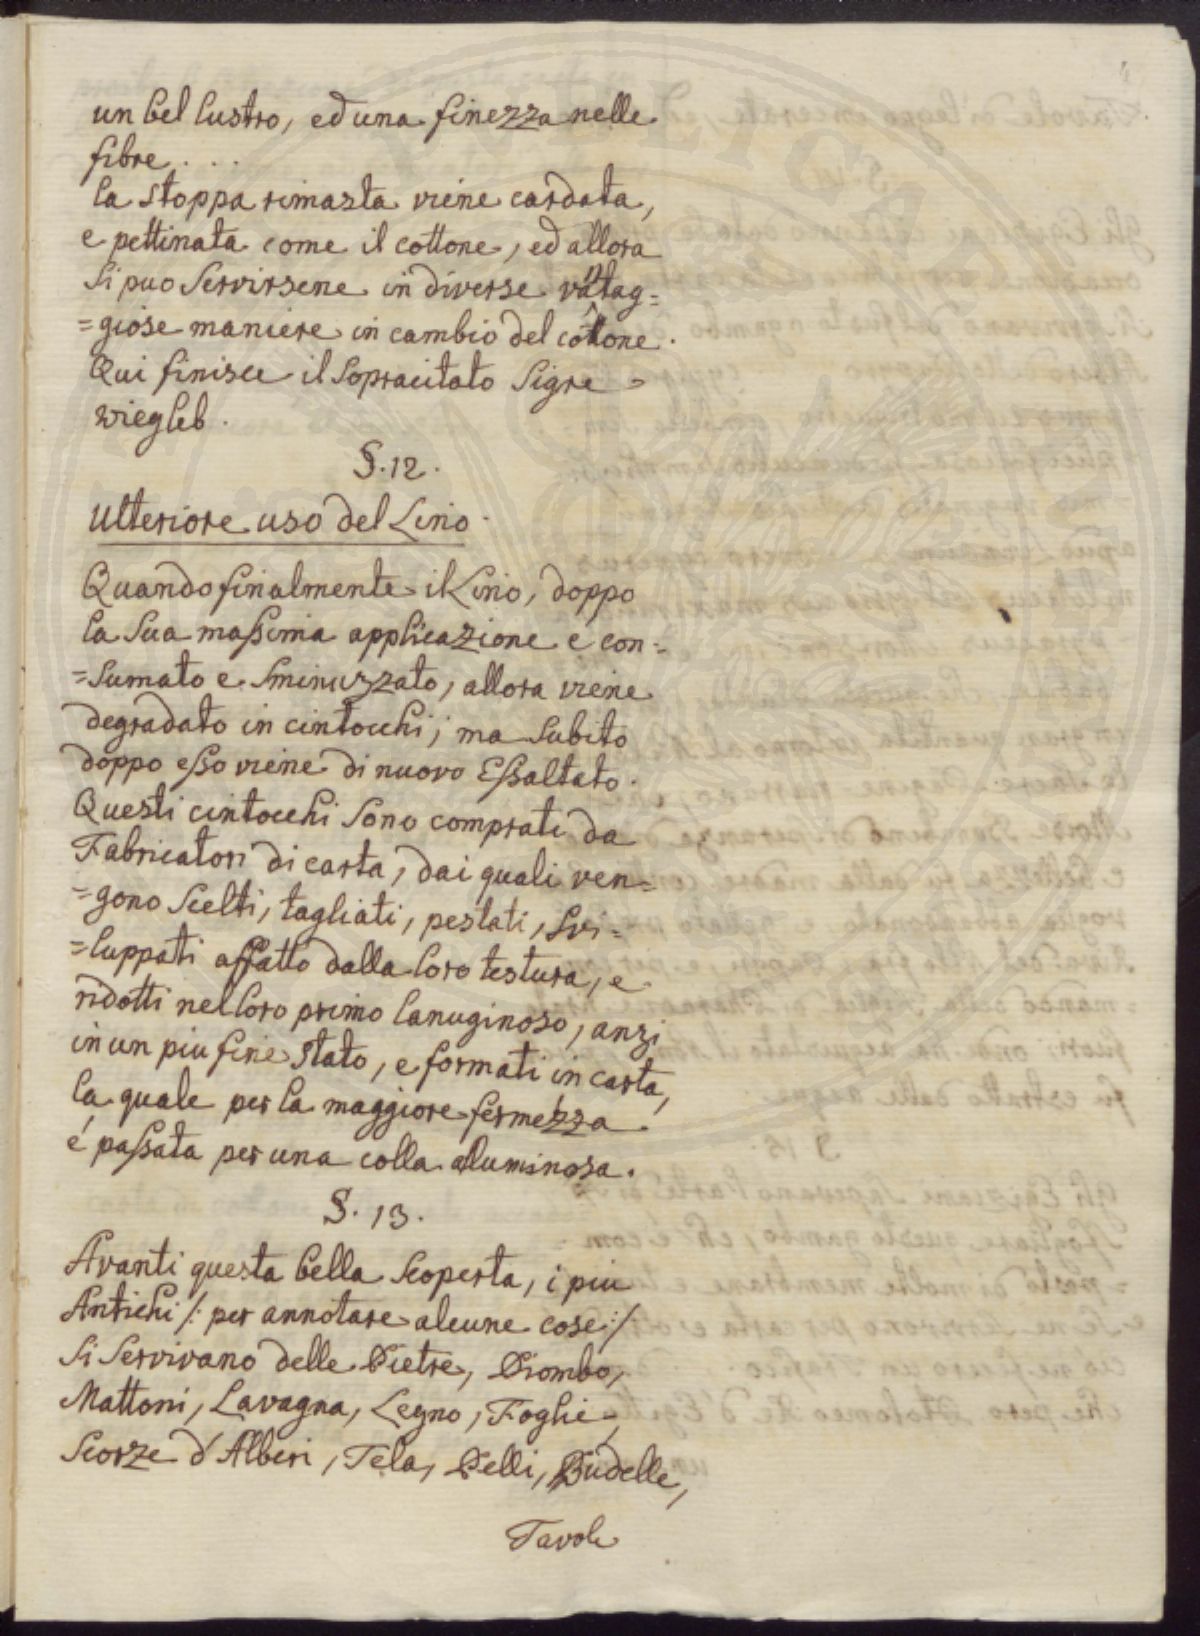 un bel lustro, ed una finezza nelle
fibre . . .
la stoppa rimasta viene cardata,
e pettinata come il cottone, ed allora
si puo servirsene in diverse vantag=
=giose maniere in cambio del cottone.
Qui finisce il sopracitato Sigre =
Wiegleb.
§. 12.
Ulteriore uso del Lino.
Quando finalmente il Lino, doppo
la sua massima applicazione e con=
=sumato e sminuzzato, allora viene
degradato in cintocchi; ma subito
doppo esso viene di nuovo Essaltato.
Questi cintocchi sono comprati da
Fabricatori di carta, dai quali ven=
=gono scelti, tagliati, pestati, svi=
=luppati affatto dalla loro testura, e
ridotti nel loro primo lanuginoso, anzi
in un piu fine stato, e formati in carta,
la quale per la maggiore fermezza
é passata per una colla aluminosa.
§. 13.
Avanti questa bella scoperta, i piu
Antichi /: per annotare alcune cose :/
si servivano delle Pietre, Piombo,
Mattoni, Lavagna, Legno, Foglie,
Scorze d'Alberi, Tela, Pelli, Budelle,
Tavole